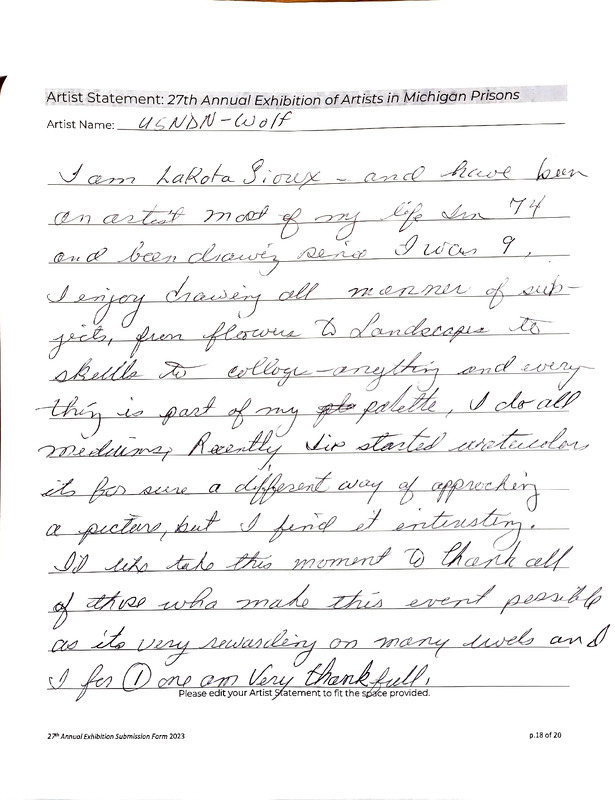 Artist Statement: 27th Annual Exhibition of Artists in Michigan Prisons
Artist Name: USNDN-Wolf
I am LaKota Sioux - and have been
an artist most of my life Im 74
and been drawing since I was 9,
I enjoy drawing all manner of sub-
jects, from flowers to Landscapes to
skulls to collage-anything and every
thing is part of my palette, I do all
mediums, Recently Ive started watercolors
its for sure a different way of approching
a picture, but I find it interesting.
I'd like take this moment to thank all
of those who make this event possible
as its very rewarding on many levels and
I for 1 one am Very thankfull,
Please edit your Artist Statement to fit the space provided.
27th Annual Exhibition Submission Form 2023
p.18 of 20